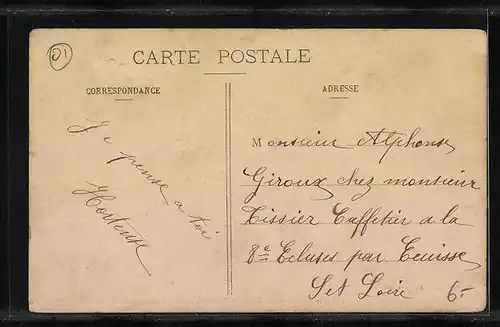 01
CARTE POSTALE
CORRESPONDANCE
ADRESSE
Je pense a toi
Hortense
Monsieur Alphonse
Giroux chez monsieur
Tissier Caffetier a la
8e Ecluses par Ecuisse
Set Loire
6-